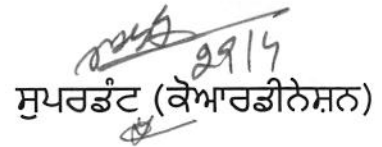 29/4
ਸੁਪਰਡੰਟ (ਕੋਆਰਡੀਨੇਸ਼ਨ)